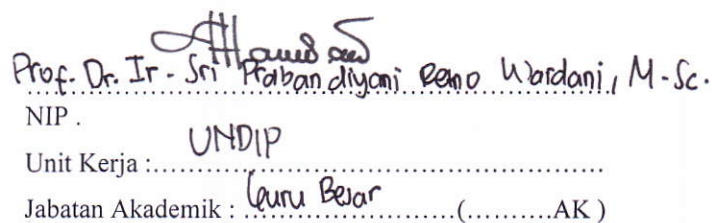 Prof. Dr. Ir. Sri Prabandiyani Retno Wardani, M.Sc.
NIP .
Unit Kerja : UNDIP
Jabatan Akademik : Guru Besar (.........AK )